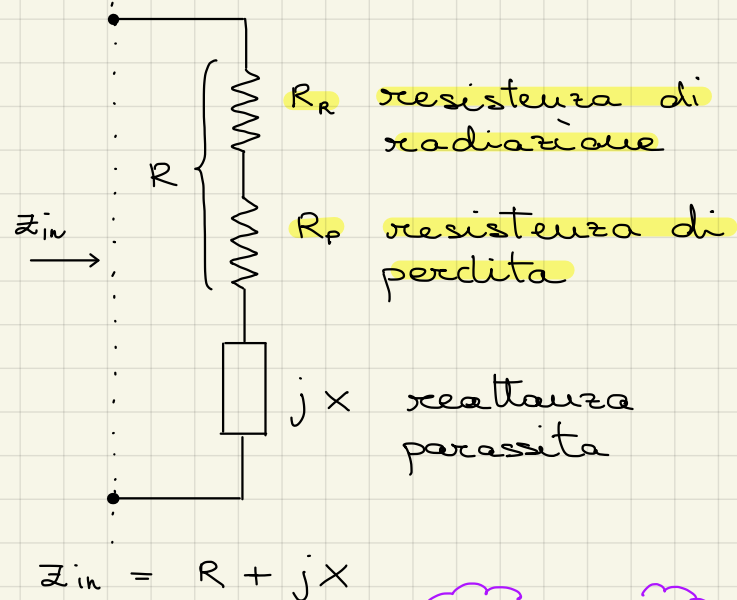 R_R resistenza di
radiazione
R
Z_in
R_p resistenza di
perdita
jX reattanza
parassita
Z_in = R + jX